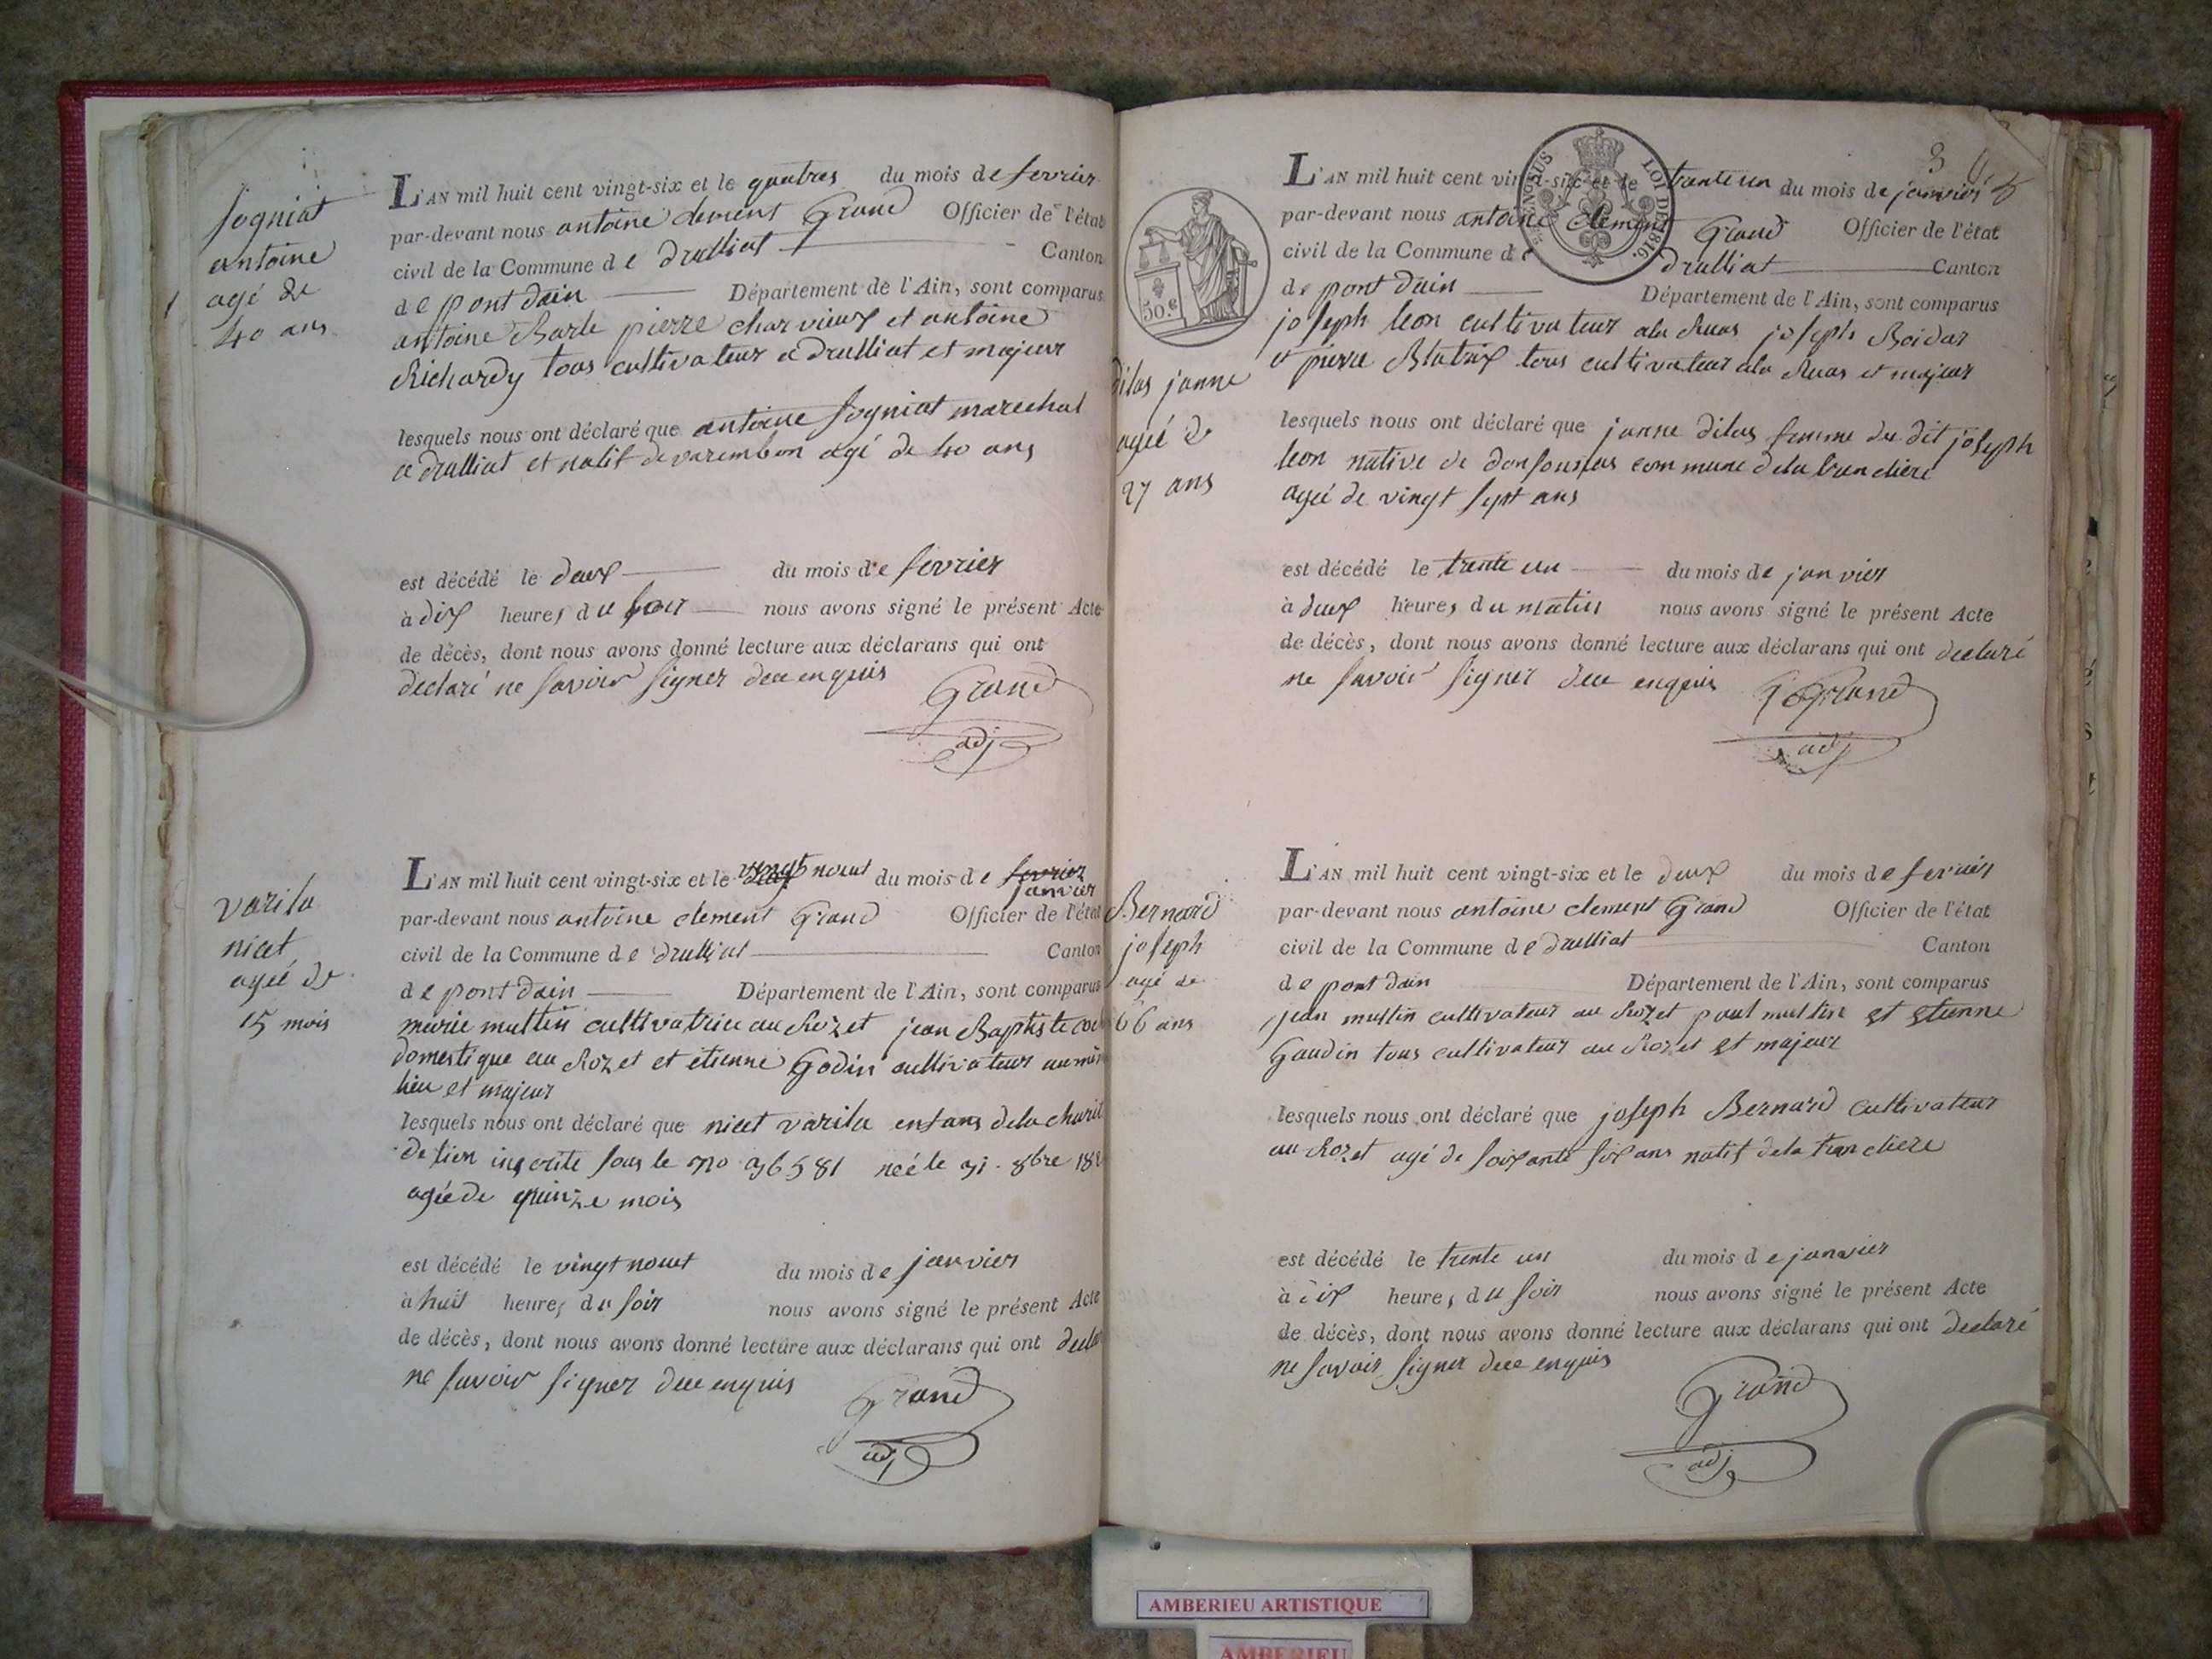 Sogniat
antoine
agé de
40 ans
L'AN mil huit cent vingt-six et le quatres du mois de fevrier
par-devant nous antoine clement Grand Officier de l'état
civil de la Commune de drulliat Canton
de pont dain Département de l'Ain, sont comparus
antoine Barle pierre charvieux et antoine
Richardy tous cultivateur a drulliat et majeur
lesquels nous ont déclaré que antoine Sogniat marechal
a drulliat et natif de varembon agé de 40 ans
est décédé le deux du mois de fevrier
à dix heures du soir nous avons signé le présent Acte
de décès, dont nous avons donné lecture aux déclarans qui ont
declaré ne savoir signer dece enquis
Grand
adj
varila
nicet
ageé de
15 mois
L'AN mil huit cent vingt-six et le vingt nout du mois de fevrier
janvier
par-devant nous antoine clement Grand Officier de l'état
civil de la Commune de drulliat Canton
de pont dain Département de l'Ain, sont comparus
marie muttin cultivatrice au Rozet jean Baptiste
domestique au Rozet et etienne Godin cultivateur
lieu et majeur
lesquels nous ont déclaré que nicet varila enfans dela
de lion inscrite sous le no 36581 neé le 31 8bre
ageé de quinze mois
est décédé le vingt nout du mois de janvier
à huit heures du soir nous avons signé le présent Acte
de décès, dont nous avons donné lecture aux déclarans qui ont
ne savoir signer dece enquis
Grand
adj
3
50 c
LOI DE 1816.
dilas janne
ageé de
27 ans
L'AN mil huit cent vingt-six et le trante un du mois de janvier
par-devant nous antoine clement Grand Officier de l'état
civil de la Commune de drulliat Canton
de pont dain Département de l'Ain, sont comparus
joseph leon cultivateur ala Ruas joseph Boidar
et pierre Blatrix tous cultivateur ala Ruas et majeur
lesquels nous ont déclaré que janne dilas femme du dit joseph
leon native de donsonnas commune dela tranchere
ageé de vingt sept ans
est décédé le trente un du mois de janvier
à deux heures du matin nous avons signé le présent Acte
de décès, dont nous avons donné lecture aux déclarans qui ont declaré
ne savoir signer dece enquis
Grand
adj
Bernard
joseph
agé de
66 ans
L'AN mil huit cent vingt-six et le deux du mois de fevrier
par-devant nous antoine clement Grand Officier de l'état
civil de la Commune de drulliat Canton
de pont dain Département de l'Ain, sont comparus
jean muttin cultivateur au Rozet paul muttin et etienne
Gaudin tous cultivateur au Rozet et majeur
lesquels nous ont déclaré que joseph Bernard cultivateur
au Rozet agé de soixante six ans natif dela tranchere
est décédé le trente un du mois de janvier
à dix heures du soir nous avons signé le présent Acte
de décès, dont nous avons donné lecture aux déclarans qui ont declaré
ne savoir signer dece enquis
Grand
adj
AMBERIEU ARTISTIQUE
AMBERIEU